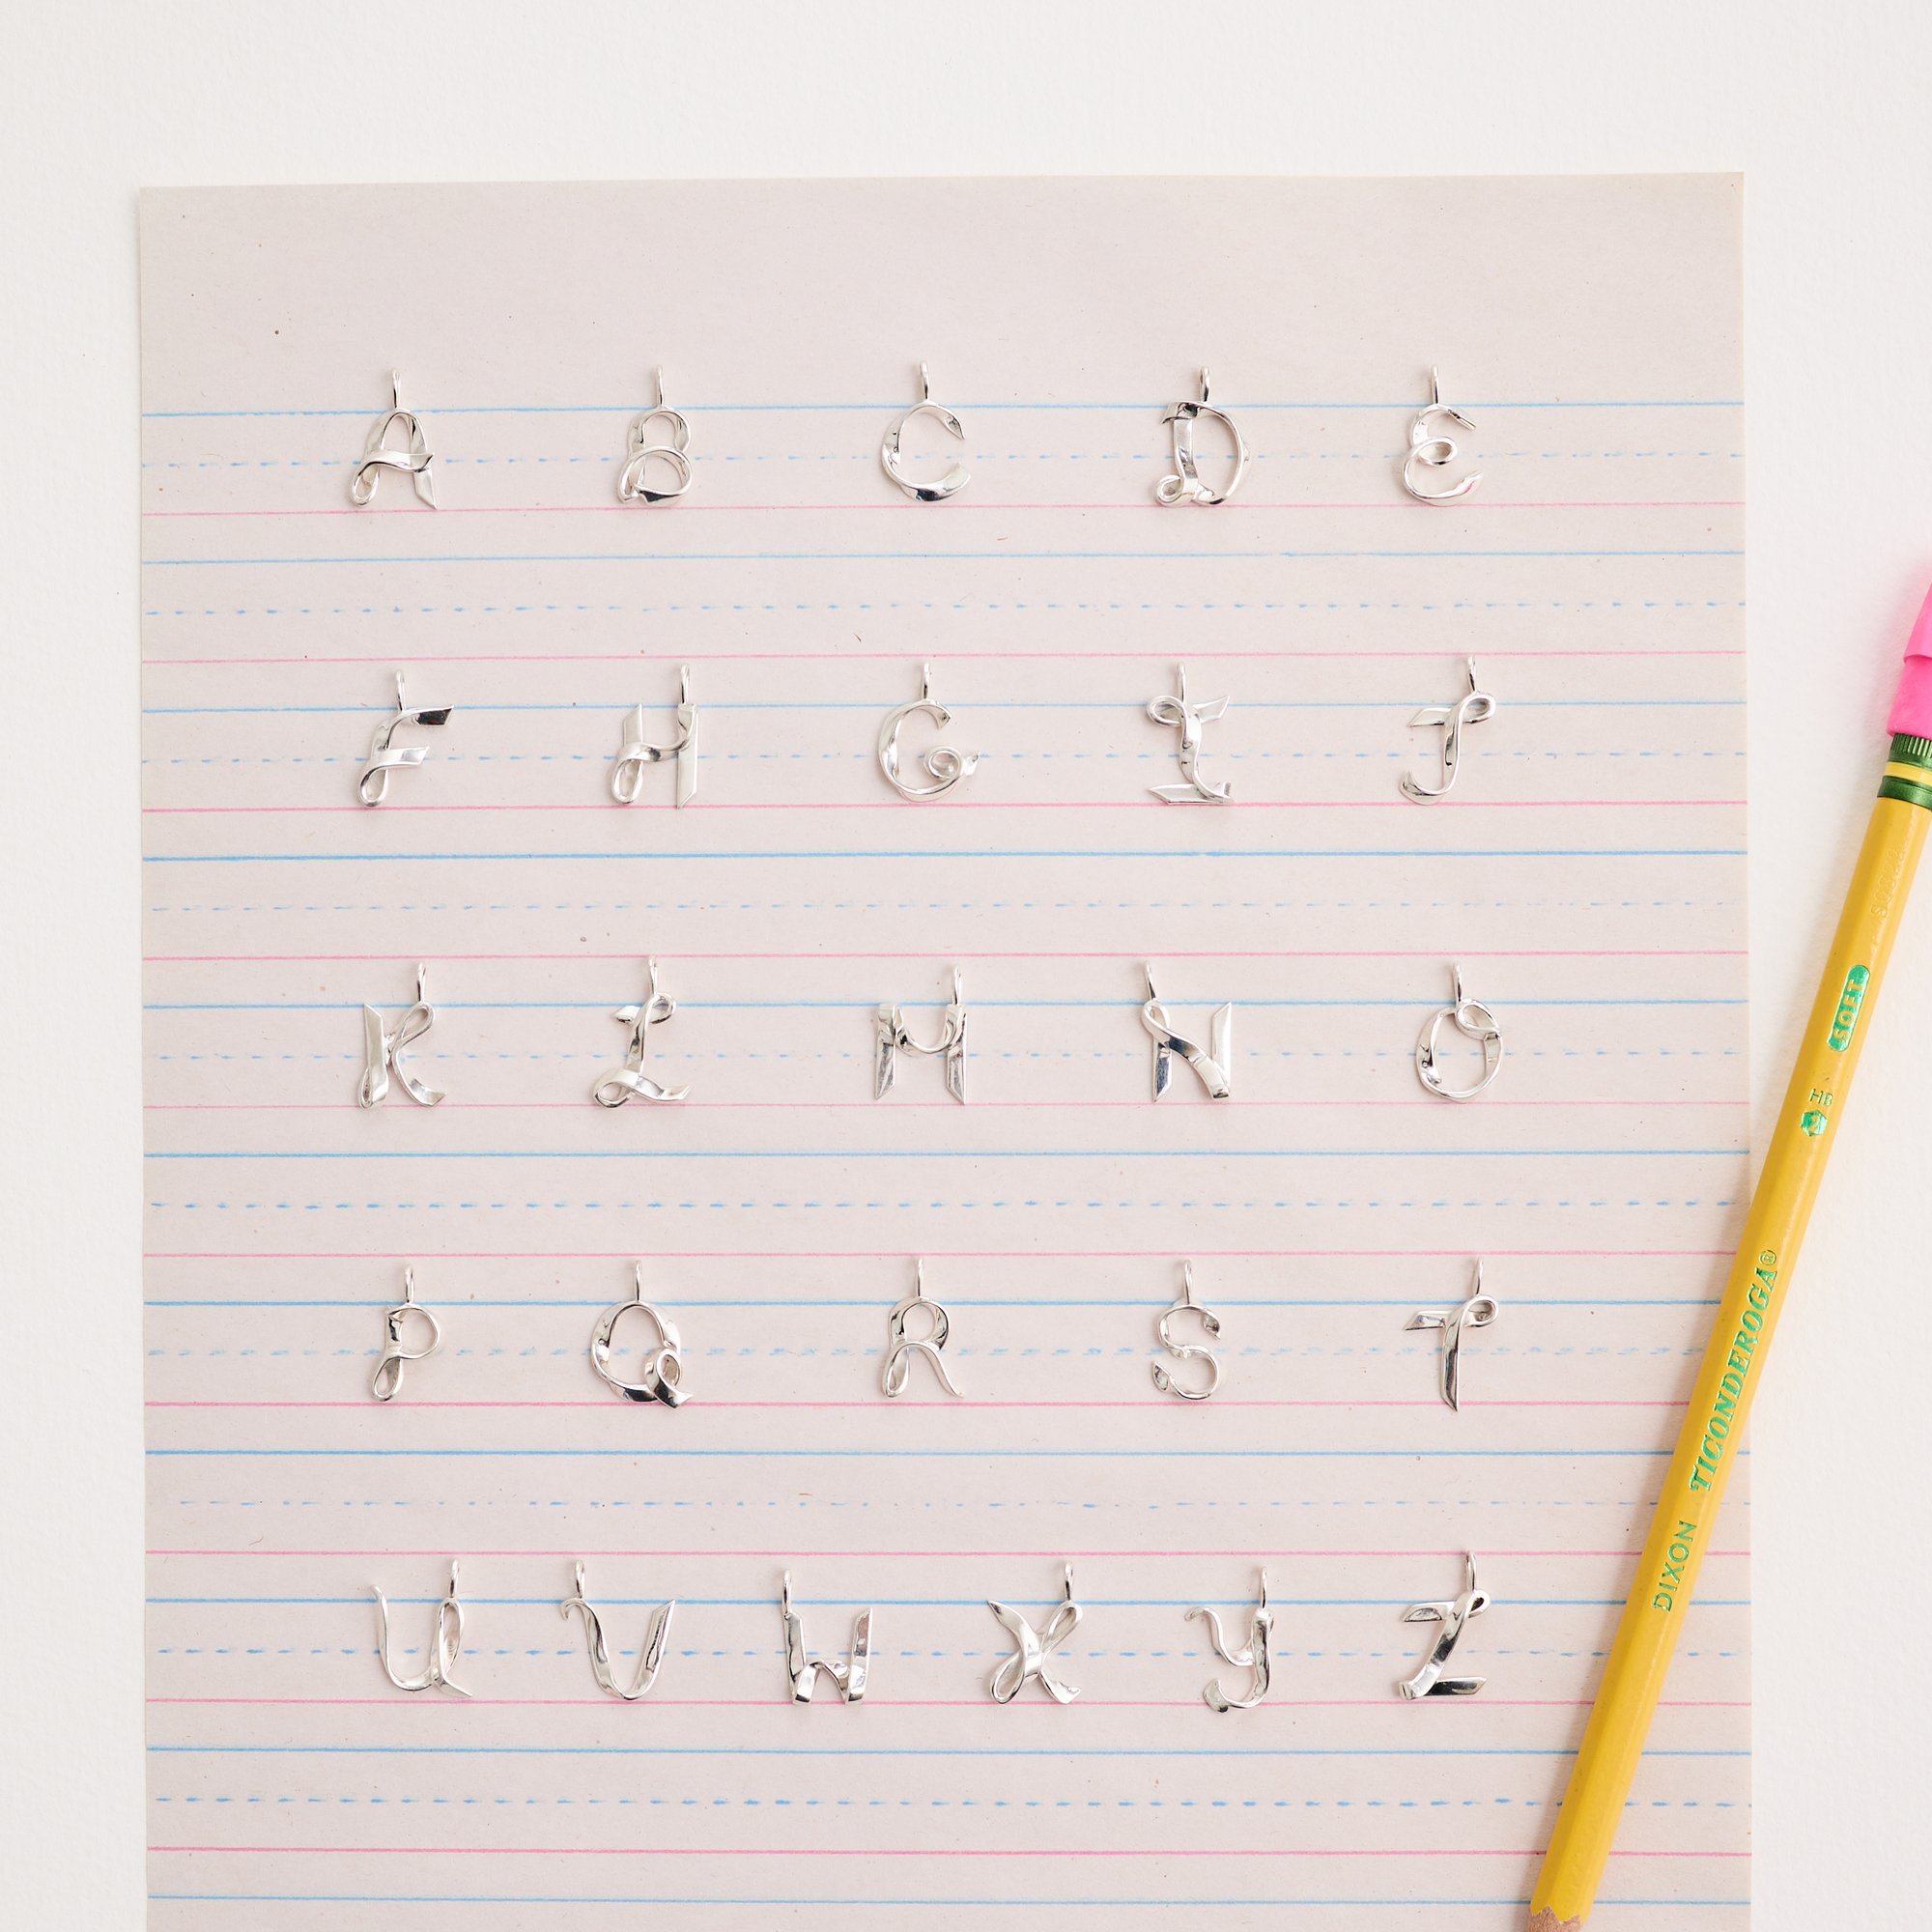 A B C D E
F H G I J
K L M N O
P Q R S T
U V W X Y Z
DIXON TICONDEROGA® HB 2 SOFT